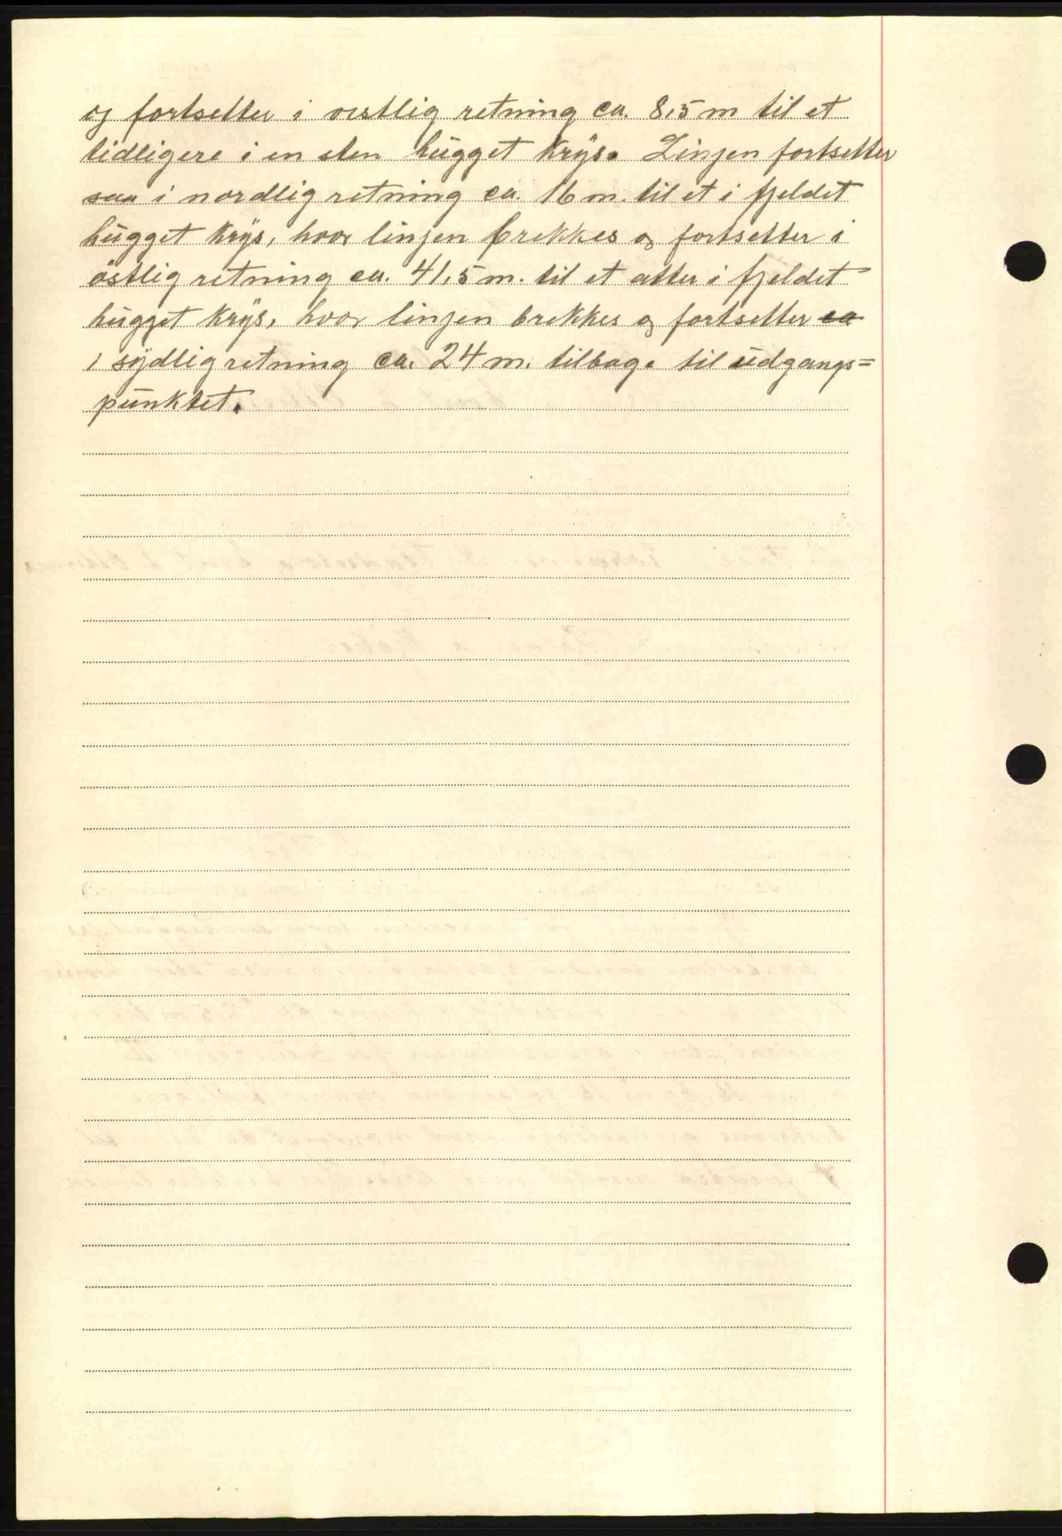 og fortsetter i vestlig retning ca. 8,5 m til et
tidligere i en sten hugget krys. Linjen fortsetter
saa i nordlig retning ca. 16 m. til et i fjeldet
hugget krys, hvor linjen brekkes og fortsetter i
östlig retning ca. 41,5 m. til et atter i fjeldet
hugget krys, hvor linjen brekkes og fortsetter ca
i sydlig retning ca. 24 m. tilbage til udgangs=
punktet.